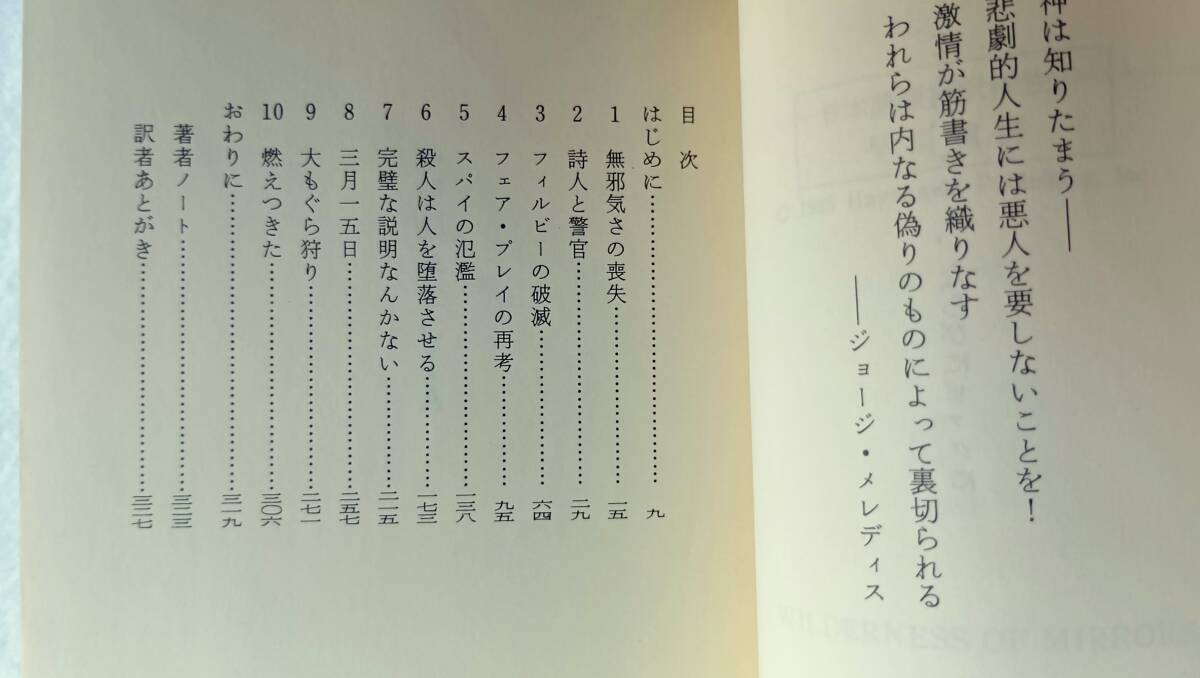 神は知りたまう――
悲劇的人生には悪人を要しないことを！
激情が筋書きを織りなす
われらは内なる偽りのものによって裏切られる
――ジョージ・メレディス
目次
はじめに……………………九
1 無邪気さの喪失……………………一五
2 詩人と警官……………………二九
3 フィルビーの破滅……………………六四
4 フェア・プレイの再考……………………九五
5 スパイの氾濫……………………一三八
6 殺人は人を堕落させる……………………一七三
7 完璧な説明なんかない……………………二一五
8 三月一五日……………………二五七
9 大もぐら狩り……………………二七一
10 燃えつきた……………………三〇六
おわりに……………………三一九
著者ノート……………………三二三
訳者あとがき……………………三二七
WILDERNESS OF MIRRORS